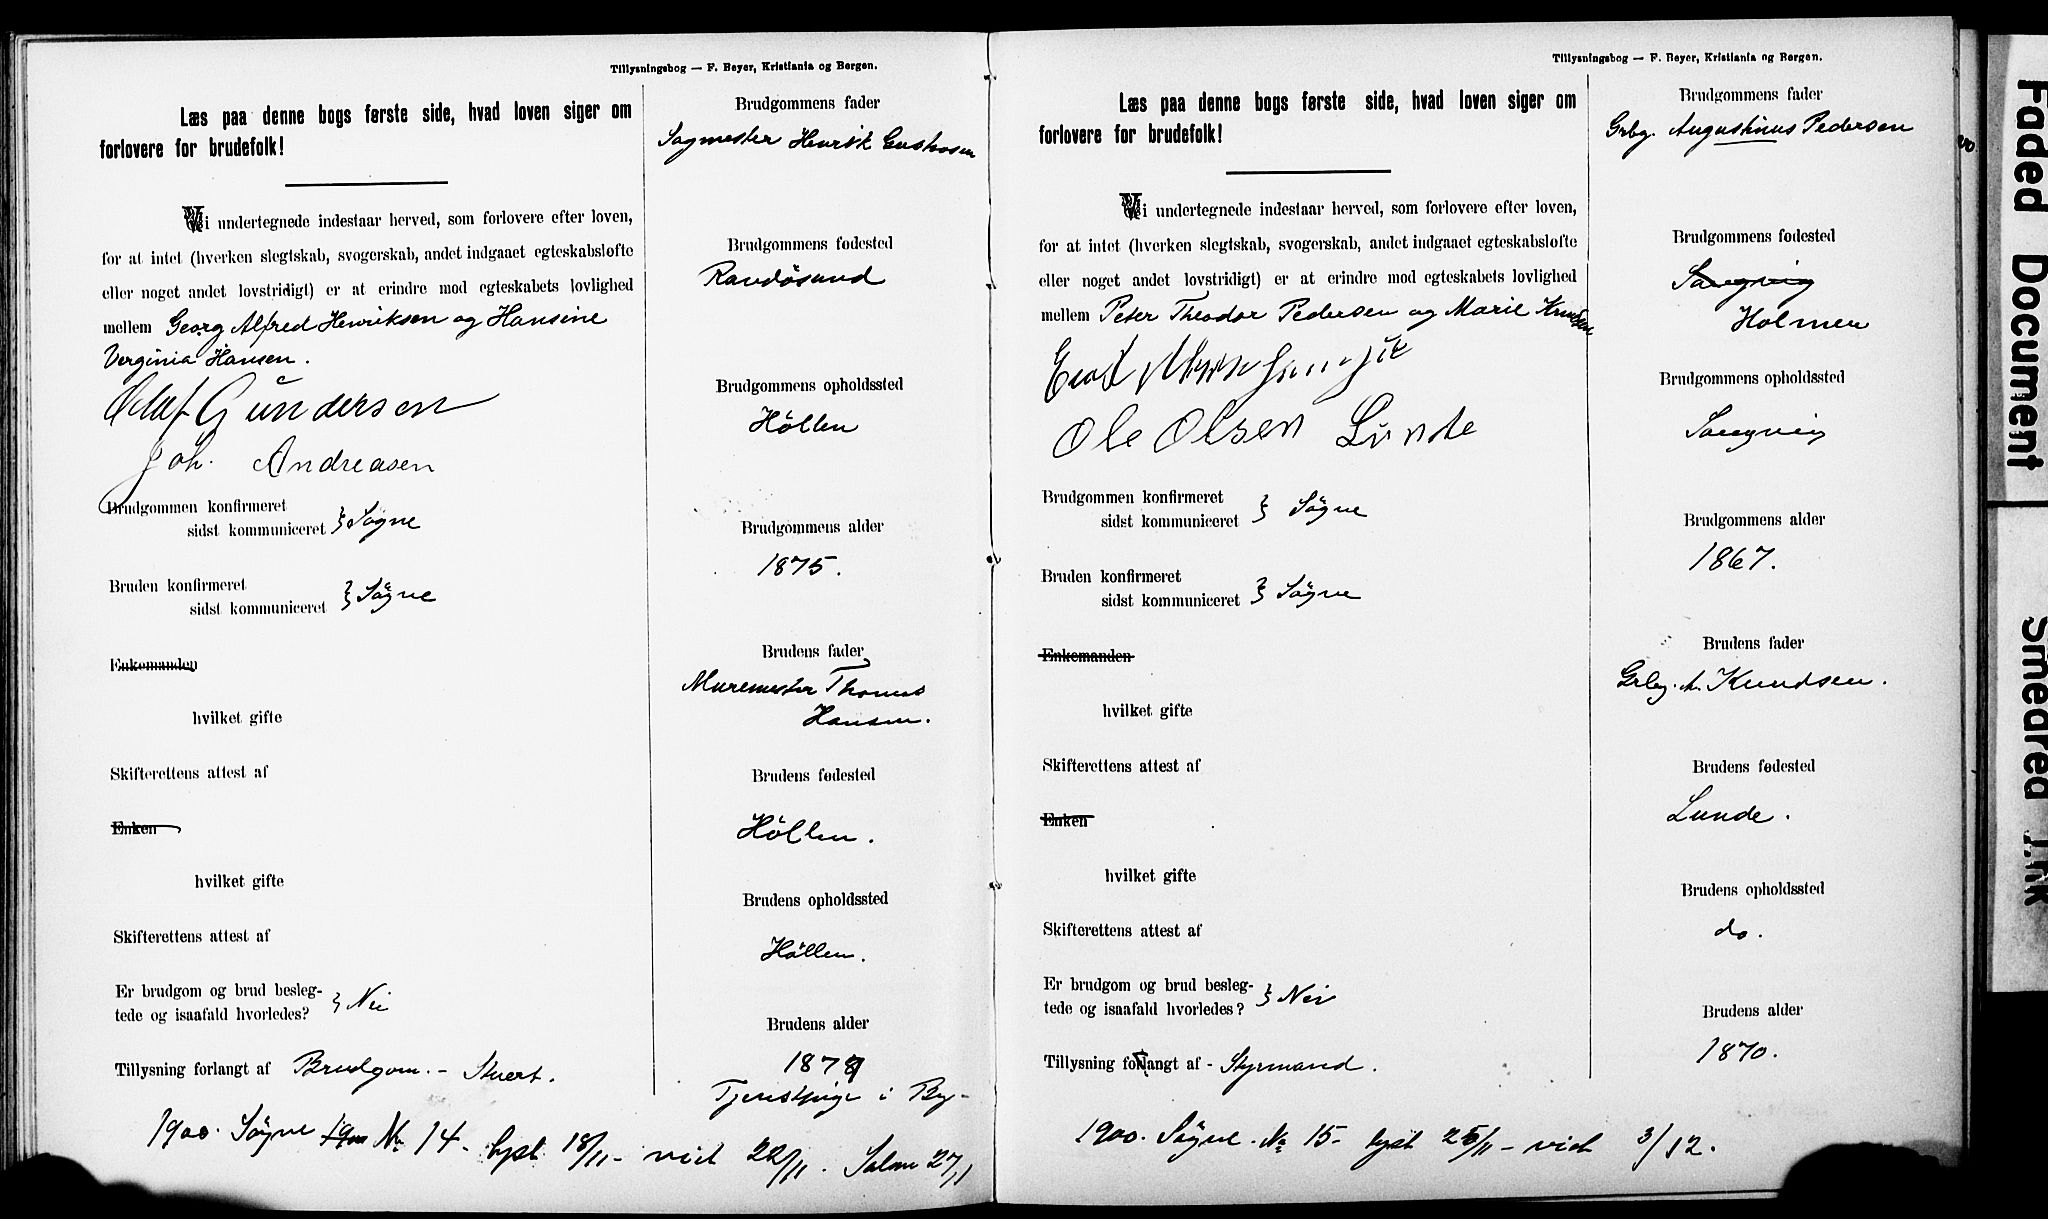 Tillysningsbog — F. Beyer, Kristiania og Bergen.
Læs paa denne bogs første side, hvad loven siger om
forlovere for brudefolk!
Vi undertegnede indestaar herved, som forlovere efter loven,
for at intet (hverken slegtskab, svogerskab, andet indgaaet egteskabsløfte
eller noget andet lovstridigt) er at erindre mod egteskabets lovlighed
mellem Georg Alfred Henriksen og Hansine
Verginia Hansen.
Olaf Gundersen
Joh. Andreasen
Brudgommen konfirmeret
sidst kommuniceret } Søgne
Bruden konfirmeret
sidst kommuniceret } Søgne
Enkemanden
hvilket gifte
Skifterettens attest af
Enken
hvilket gifte
Skifterettens attest af
Er brudgom og brud besleg-
tede og isaafald hvorledes? } Nei
Tillysning forlangt af Brudgom. - Stuert.
Brudgommens fader
Sagmester Henrik Gustavsen
Brudgommens fødested
Randøsund
Brudgommens opholdssted
Høllen
Brudgommens alder
1875.
Brudens fader
Muremester Thomas
Hansen.
Brudens fødested
Høllen.
Brudens opholdssted
Høllen.
Brudens alder
Tjenestpige i By-
1900. Søgne 1900 No 14 - lyst 18/11 - viet 22/11.
Tillysningsbog — F. Beyer, Kristiania og Bergen.
Læs paa denne bogs første side, hvad loven siger om
forlovere for brudefolk!
Vi undertegnede indestaar herved, som forlovere efter loven,
for at intet (hverken slegtskab, svogerskab, andet indgaaet egteskabsløfte
eller noget andet lovstridigt) er at erindre mod egteskabets lovlighed
mellem Peter Theodor Pedersen og Marie Knudsen
Ole Olsen Lunde
Brudgommen konfirmeret
sidst kommuniceret } Søgne
Bruden konfirmeret
sidst kommuniceret } Søgne
Enkemanden
hvilket gifte
Skifterettens attest af
Enken
hvilket gifte
Skifterettens attest af
Er brudgom og brud besleg-
tede og isaafald hvorledes? } Nei
Tillysning forlangt af - Styrmand.
Brudgommens fader
Grbg. Augustinus Pedersen
Brudgommens fødested
Langvig
Holmen
Brudgommens opholdssted
Langvig
Brudgommens alder
1867.
Brudens fader
Grbg. A. Knudsen.
Brudens fødested
Lunde.
Brudens opholdssted
do.
Brudens alder
1870.
1900. Søgne. No 15 - lyst 25/11 - viet 3/12.
Faded Document
Smeared Ink